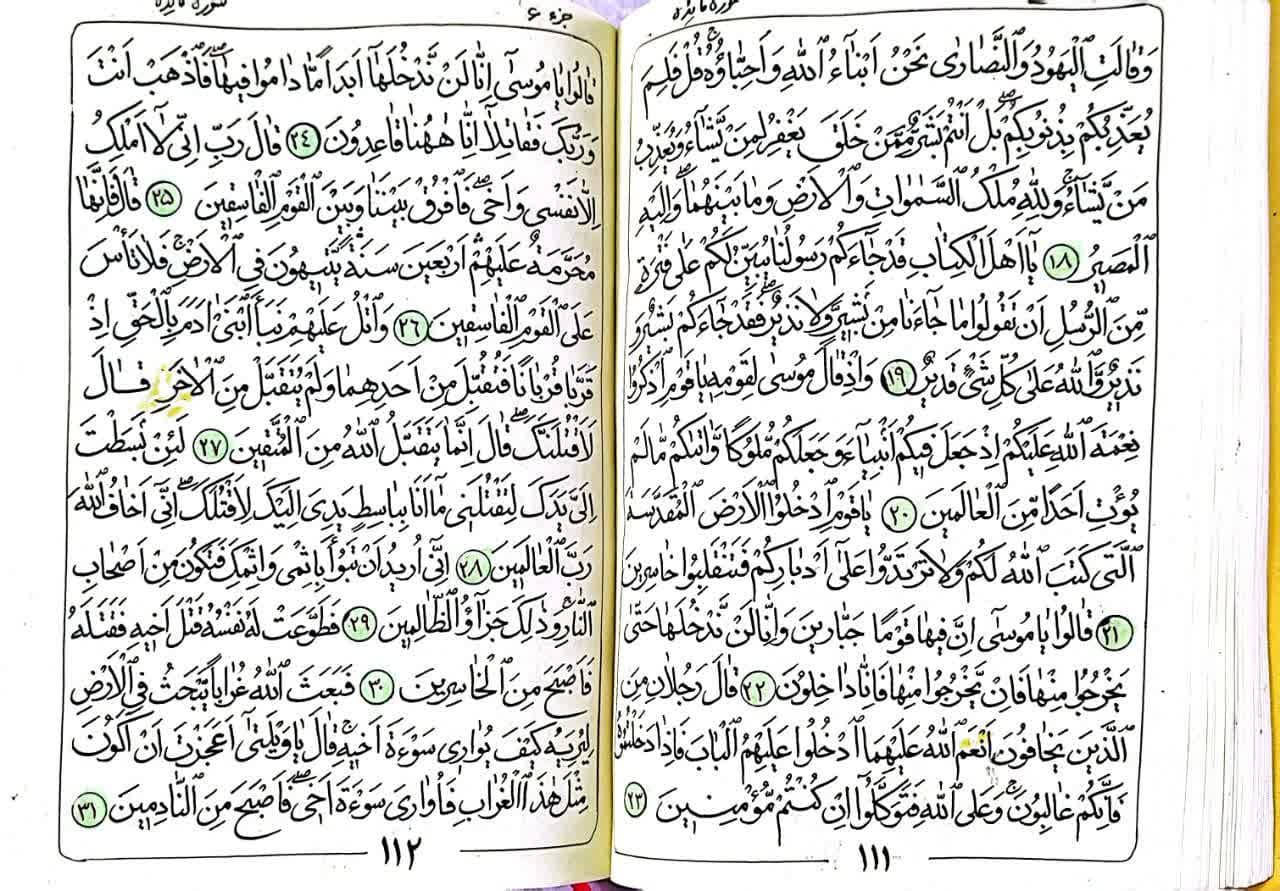 سورة مائده
وَقَالَتِ ٱلْيَهُودُ وَٱلنَّصَارٰى نَحْنُ اَبْنَآءُ ٱللّٰهِ وَاَحِبَّاؤُهُ ۚ قُلْ فَلِمَ
يُعَذِّبُكُمْ بِذُنُوبِكُمْ ۖ بَلْ اَنْتُمْ بَشَرٌ مِّمَّنْ خَلَقَ يَغْفِرُ لِمَنْ يَّشَآءُ وَيُعَذِّبُ
مَنْ يَّشَآءُ ۚ وَلِلّٰهِ مُلْكُ ٱلسَّمٰوَاتِ وَٱلْاَرْضِ وَمَا بَيْنَهُمَا ۖ وَاِلَيْهِ
ٱلْمَصِيرُ ١٨ يَآ اَهْلَ ٱلْكِتَابِ قَدْ جَآءَكُمْ رَسُولُنَا يُبَيِّنُ لَكُمْ عَلٰى فَتْرَةٍ
مِّنَ ٱلرُّسُلِ اَنْ تَقُولُوا مَا جَآءَنَا مِنْ بَشِيرٍ وَّلَا نَذِيرٍ ۖ فَقَدْ جَآءَكُمْ بَشِيرٌ وَ
نَذِيرٌ ۗ وَٱللّٰهُ عَلٰى كُلِّ شَىْءٍ قَدِيرٌ ١٩ وَاِذْ قَالَ مُوسٰى لِقَوْمِهِ يَا قَوْمِ ٱذْكُرُوا
نِعْمَةَ ٱللّٰهِ عَلَيْكُمْ اِذْ جَعَلَ فِيكُمْ اَنْبِيَآءَ وَجَعَلَكُمْ مُّلُوكًا وَّاٰتٰىكُمْ مَّا لَمْ
يُؤْتِ اَحَدًا مِّنَ ٱلْعَالَمِينَ ٢٠ يَا قَوْمِ ٱدْخُلُوا ٱلْاَرْضَ ٱلْمُقَدَّسَةَ
ٱلَّتِى كَتَبَ ٱللّٰهُ لَكُمْ وَلَا تَرْتَدُّوا عَلٰٓى اَدْبَارِكُمْ فَتَنْقَلِبُوا خَاسِرِينَ
٢١ قَالُوا يَا مُوسٰٓى اِنَّ فِيهَا قَوْمًا جَبَّارِينَ وَاِنَّا لَنْ نَّدْخُلَهَا حَتّٰى
يَخْرُجُوا مِنْهَا فَاِنْ يَّخْرُجُوا مِنْهَا فَاِنَّا دَاخِلُونَ ٢٢ قَالَ رَجُلَانِ مِنَ
ٱلَّذِينَ يَخَافُونَ اَنْعَمَ ٱللّٰهُ عَلَيْهِمَا ٱدْخُلُوا عَلَيْهِمُ ٱلْبَابَ فَاِذَا دَخَلْتُمُوهُ
فَاِنَّكُمْ غَالِبُونَ ۚ وَعَلَى ٱللّٰهِ فَتَوَكَّلُوٓا اِنْ كُنْتُمْ مُّؤْمِنِينَ ٢٣
١١١
جزء ٦
سورة مائده
قَالُوا يَا مُوسٰٓى اِنَّا لَنْ نَّدْخُلَهَآ اَبَدًا مَّا دَامُوا فِيهَا ۖ فَٱذْهَبْ اَنْتَ
وَرَبُّكَ فَقَاتِلَآ اِنَّا هٰهُنَا قَاعِدُونَ ٢٤ قَالَ رَبِّ اِنِّى لَآ اَمْلِكُ
اِلَّا نَفْسِى وَاَخِى ۖ فَٱفْرُقْ بَيْنَنَا وَبَيْنَ ٱلْقَوْمِ ٱلْفَاسِقِينَ ٢٥ قَالَ فَاِنَّهَا
مُحَرَّمَةٌ عَلَيْهِمْ اَرْبَعِينَ سَنَةً يَّتِيهُونَ فِى ٱلْاَرْضِ ۚ فَلَا تَأْسَ
عَلَى ٱلْقَوْمِ ٱلْفَاسِقِينَ ٢٦ وَٱتْلُ عَلَيْهِمْ نَبَأَ ٱبْنَىْ اٰدَمَ بِٱلْحَقِّ اِذْ
قَرَّبَا قُرْبَانًا فَتُقُبِّلَ مِنْ اَحَدِهِمَا وَلَمْ يُتَقَبَّلْ مِنَ ٱلْاٰخَرِ قَالَ
لَاَقْتُلَنَّكَ ۖ قَالَ اِنَّمَا يَتَقَبَّلُ ٱللّٰهُ مِنَ ٱلْمُتَّقِينَ ٢٧ لَئِنْ بَسَطْتَ
اِلَىَّ يَدَكَ لِتَقْتُلَنِى مَآ اَنَا بِبَاسِطٍ يَدِىَ اِلَيْكَ لِاَقْتُلَكَ ۖ اِنِّىٓ اَخَافُ ٱللّٰهَ
رَبَّ ٱلْعَالَمِينَ ٢٨ اِنِّىٓ اُرِيدُ اَنْ تَبُوٓأَ بِاِثْمِى وَاِثْمِكَ فَتَكُونَ مِنْ اَصْحَابِ
ٱلنَّارِ ۚ وَذٰلِكَ جَزٰٓؤُا ٱلظَّالِمِينَ ٢٩ فَطَوَّعَتْ لَهُ نَفْسُهُ قَتْلَ اَخِيهِ فَقَتَلَهُ
فَاَصْبَحَ مِنَ ٱلْخَاسِرِينَ ٣٠ فَبَعَثَ ٱللّٰهُ غُرَابًا يَّبْحَثُ فِى ٱلْاَرْضِ
لِيُرِيَهُ كَيْفَ يُوَارِى سَوْءَةَ اَخِيهِ ۚ قَالَ يَا وَيْلَتٰٓى اَعَجَزْتُ اَنْ اَكُونَ
مِثْلَ هٰذَا ٱلْغُرَابِ فَاُوَارِىَ سَوْءَةَ اَخِى ۖ فَاَصْبَحَ مِنَ ٱلنَّادِمِينَ ٣١
١١٢